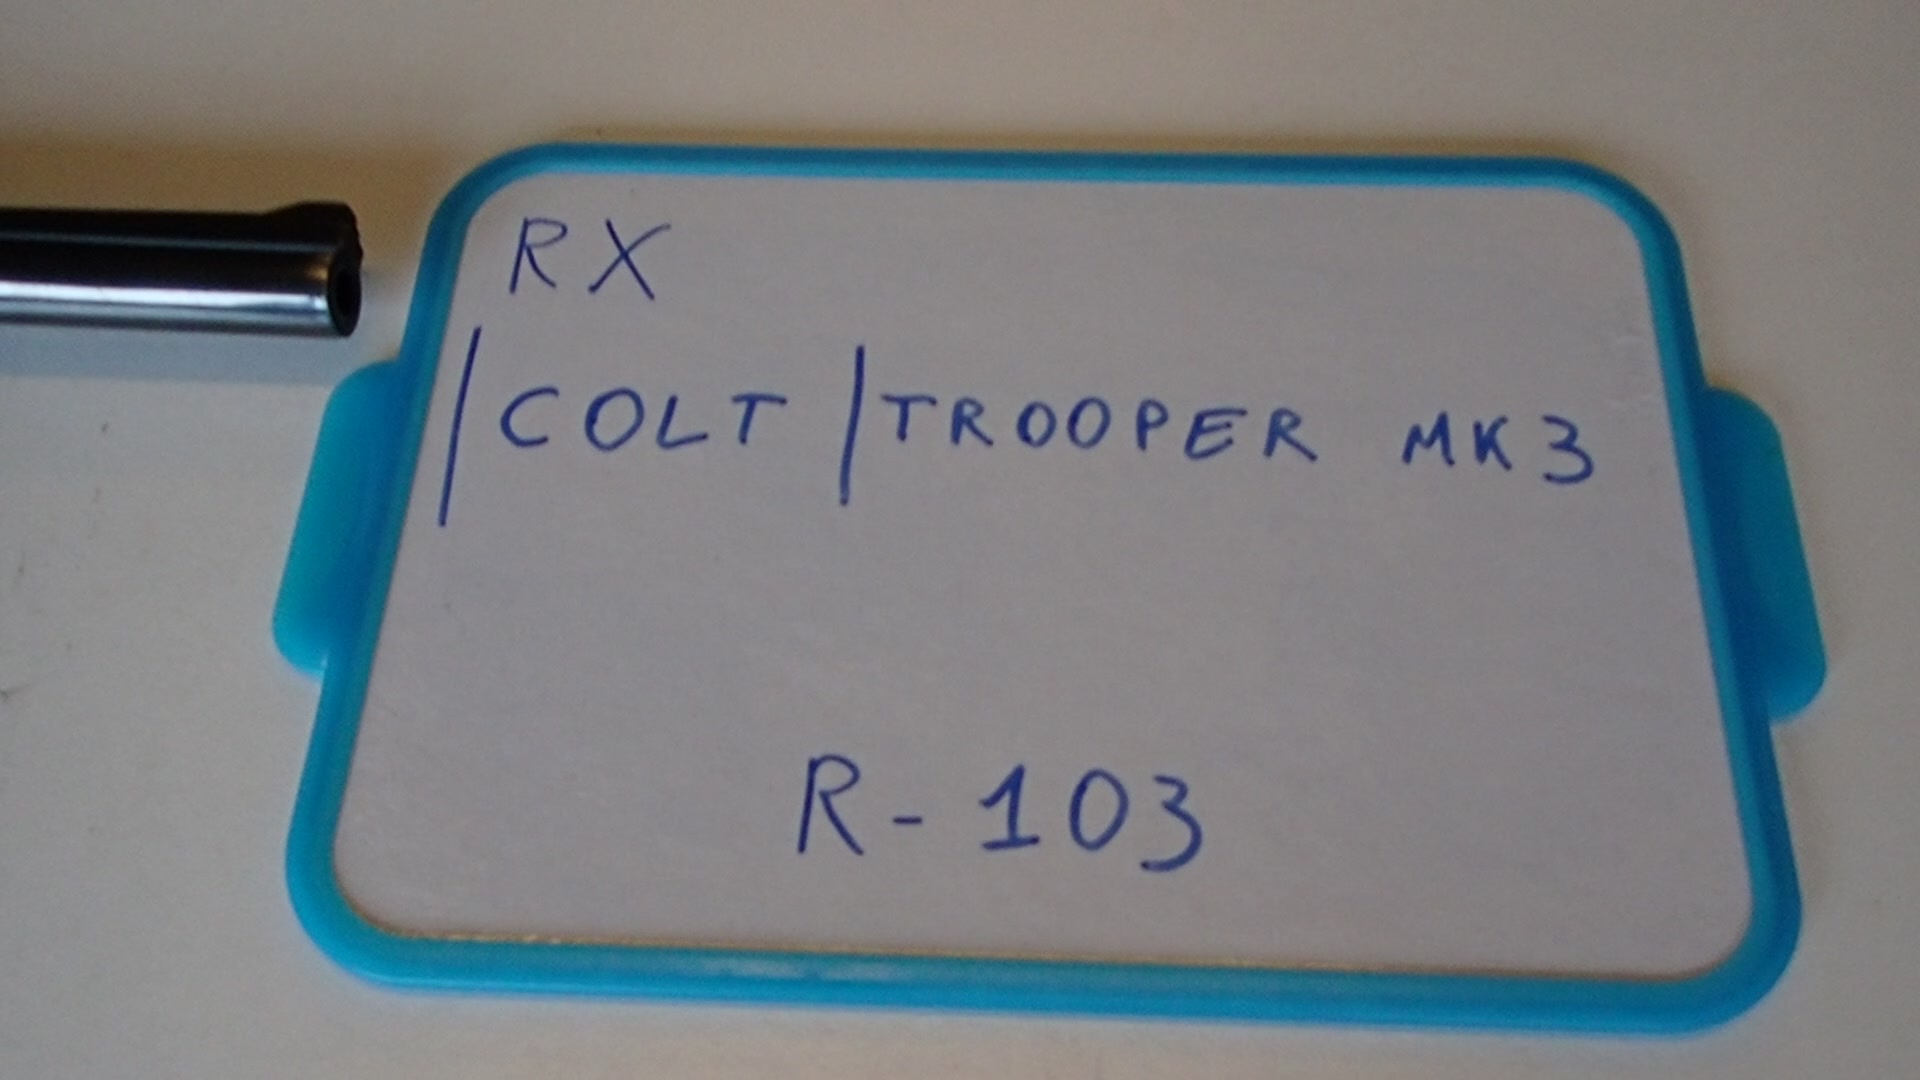 RX
|COLT|TROOPER MK3
R-103